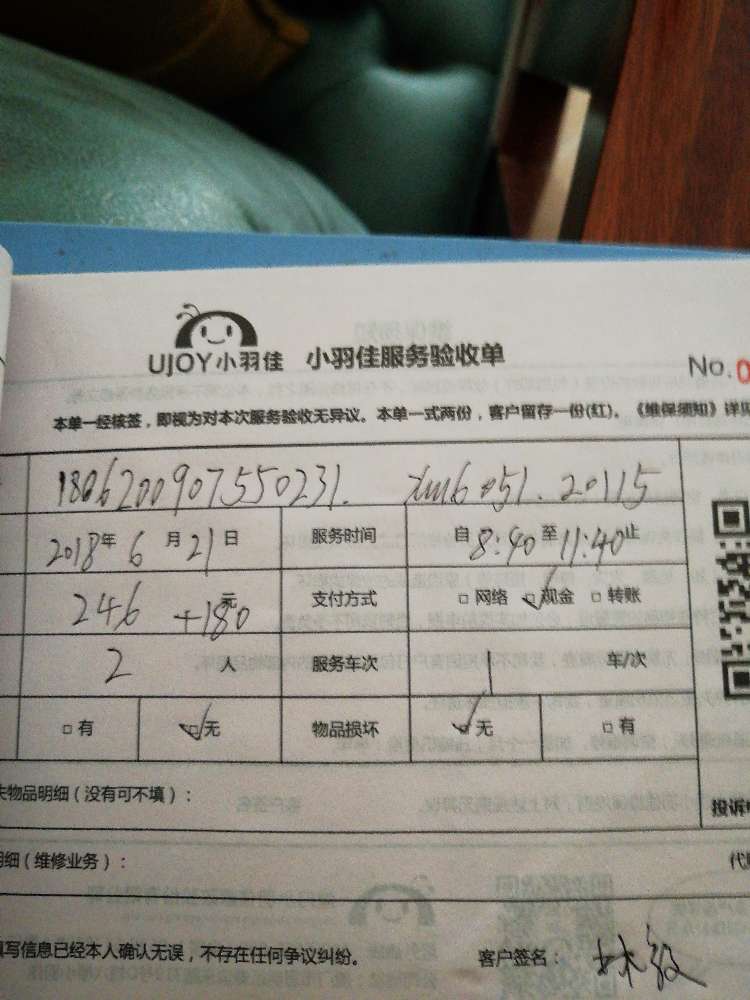 UJOY小羽佳 小羽佳服务验收单
No.0
本单一经核签，即视为对本次服务验收无异议。本单一式两份，客户留存一份(红)。《维保须知》详见
1806200907550231.
2018年6月21日 服务时间 自8:40至11:40止
246元+180 支付方式 □网络 ☑现金 □转账
2人 服务车次 1车/次
□有 ☑无 物品损坏 ☑无 □有
失物品明细（没有可不填）：
投诉
明细（维修业务）：
填写信息已经本人确认无误，不存在任何争议纠纷。 客户签名：